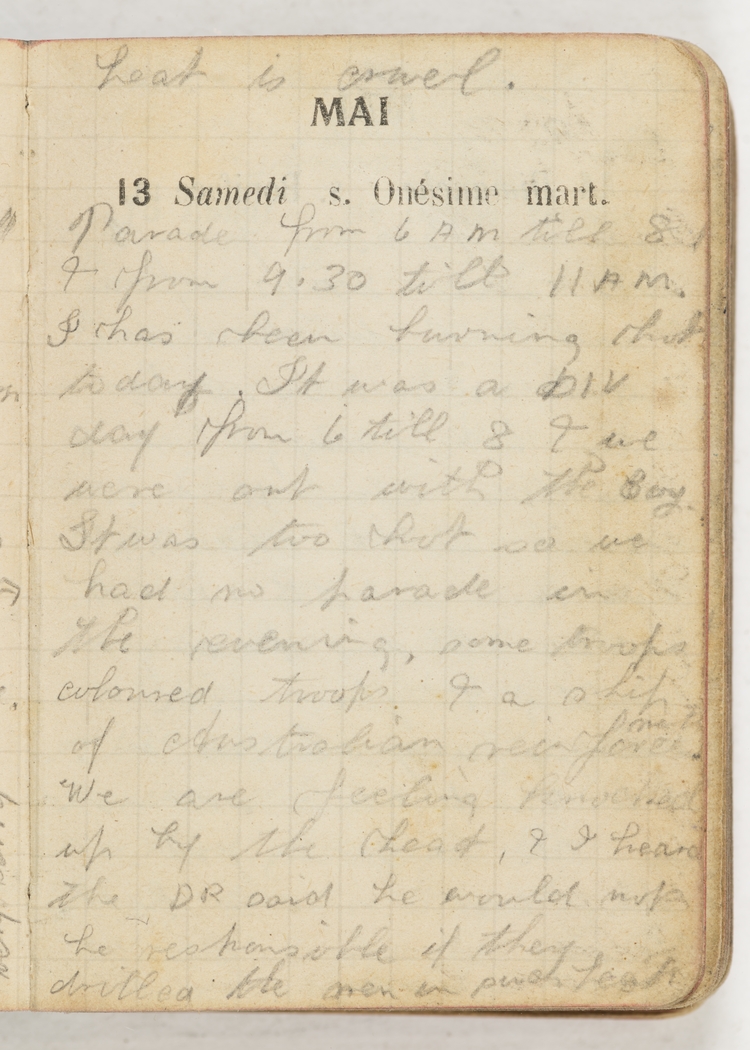 heat is cruel.
MAI
13 Samedi s. Onésime mart.
Parade from 6 AM till 8
& from 9.30 till 11 AM.
I has been burning hot
today. It was a DIV
day from 6 till 8 & we
were out with the Coy.
It was too hot so we
had no parade in
the evening, some troops
coloured troops & a ship
of Australian reinforce.
We are feeling knocked
up by the heat, & I heard
the DR said he would not
be responsible if they
drilled the men in such heat